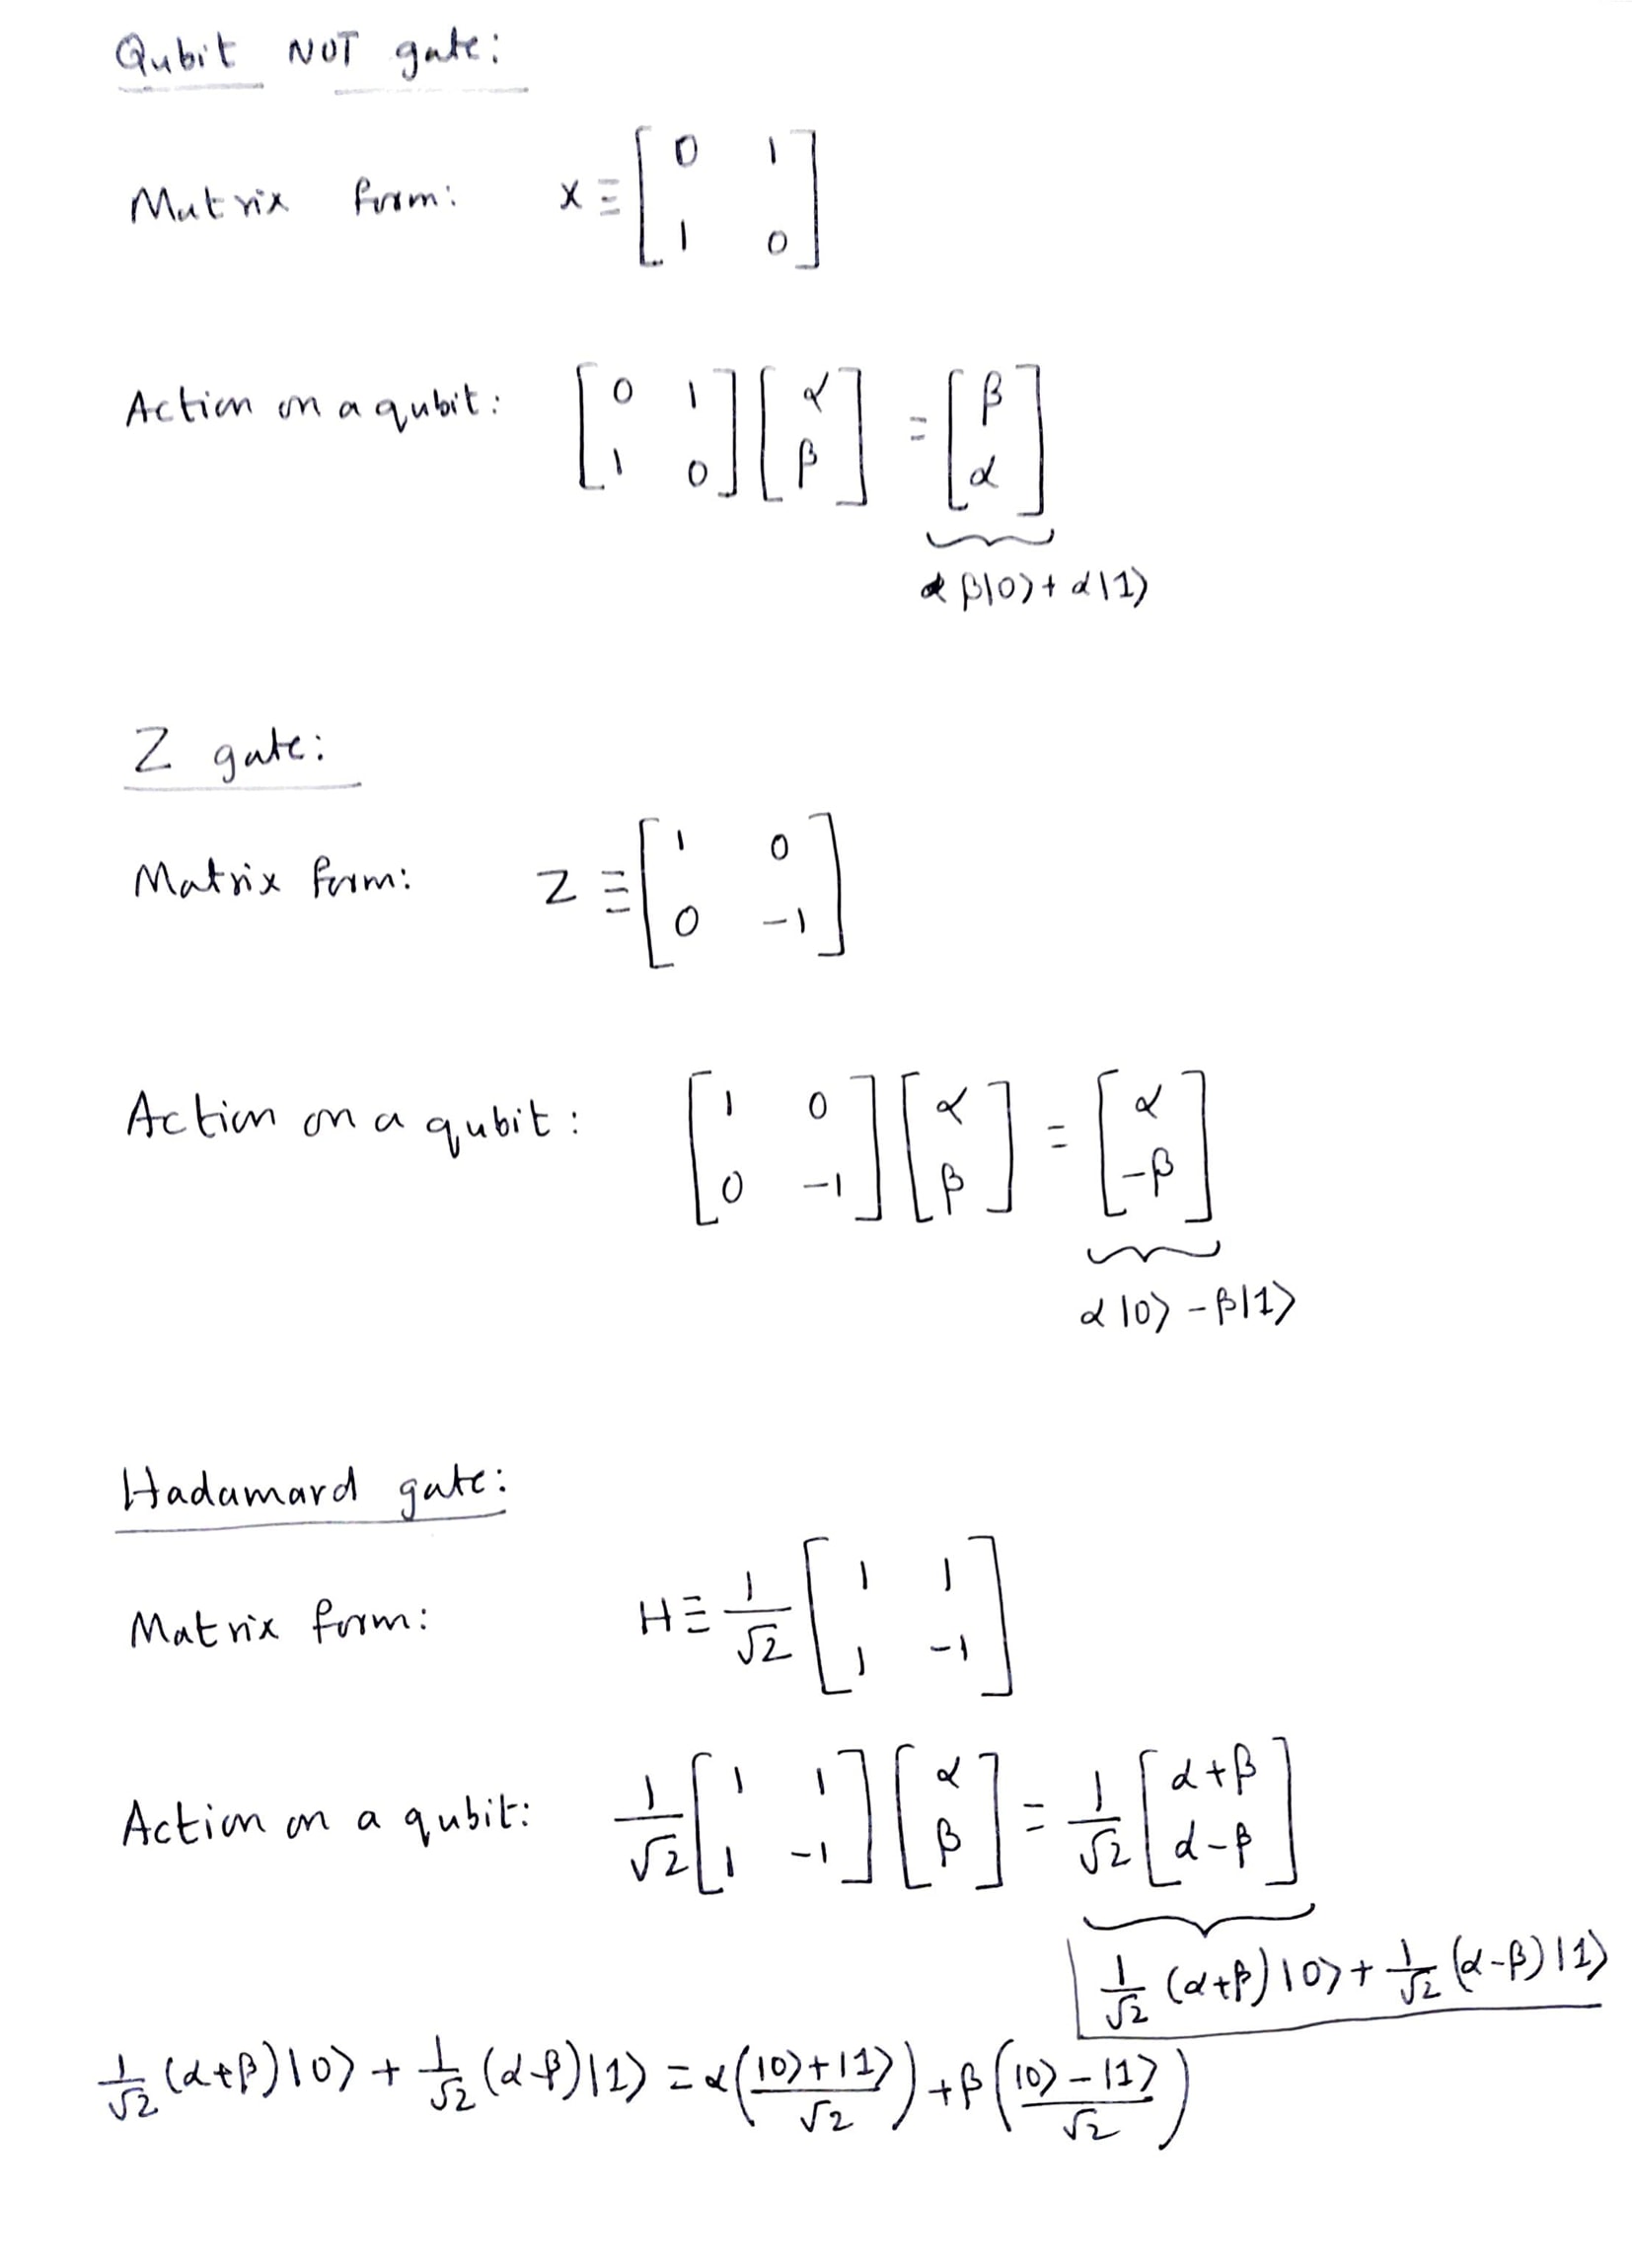 Qubit NOT gate:
Matrix form: X ≡ [0 1; 1 0]
Action on a qubit: [0 1; 1 0] [α; β] = [β; α]
β|0⟩ + α|1⟩
Z gate:
Matrix form: Z ≡ [1 0; 0 -1]
Action on a qubit: [1 0; 0 -1] [α; β] = [α; -β]
α|0⟩ - β|1⟩
Hadamard gate:
Matrix form: H ≡ 1/√2 [1 1; 1 -1]
Action on a qubit: 1/√2 [1 1; 1 -1] [α; β] = 1/√2 [α+β; α-β]
1/√2 (α+β)|0⟩ + 1/√2 (α-β)|1⟩
1/√2 (α+β)|0⟩ + 1/√2 (α-β)|1⟩ = α((|0⟩+|1⟩)/√2) + β((|0⟩-|1⟩)/√2)